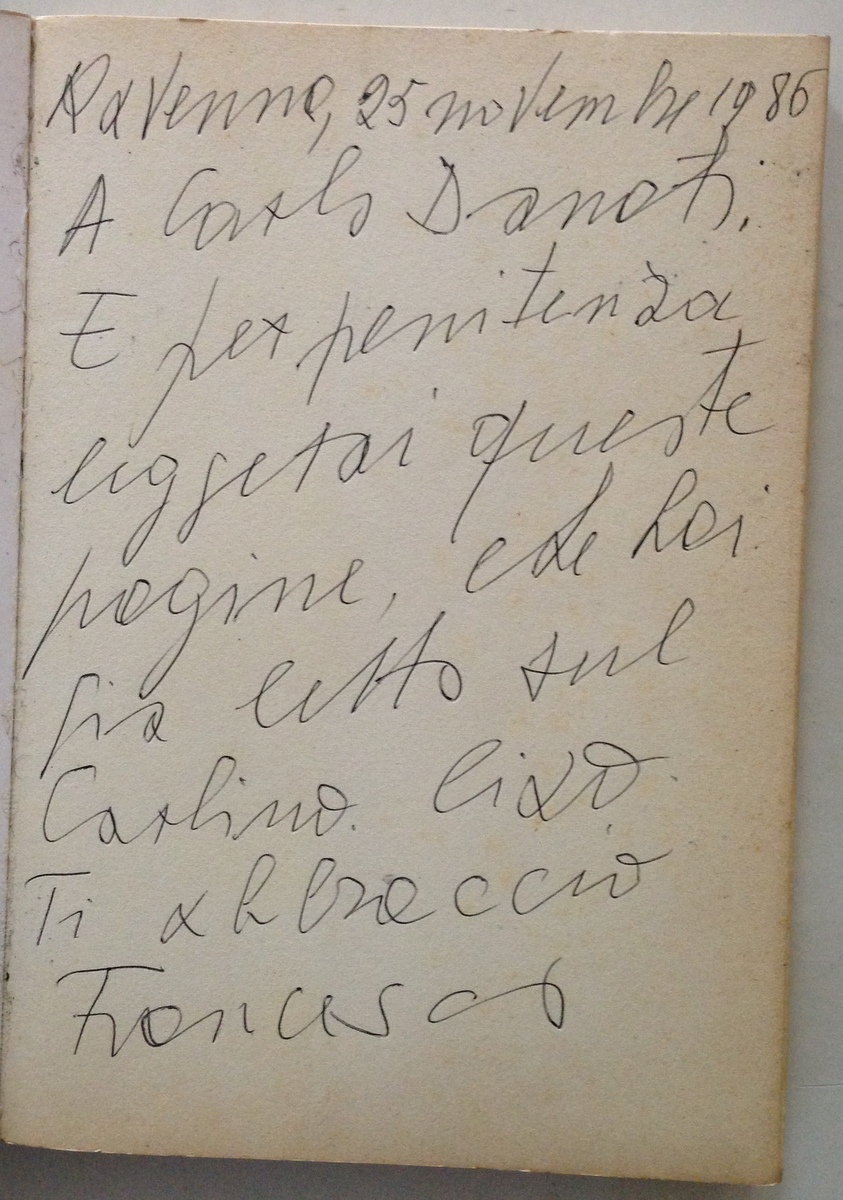 Ravenna, 25 novembre 1986
A Carlo Donati,
E per penitenza
leggerai queste
pagine, che hai
già letto sul
Carlino. Ciao.
Ti abbraccio
Francesco